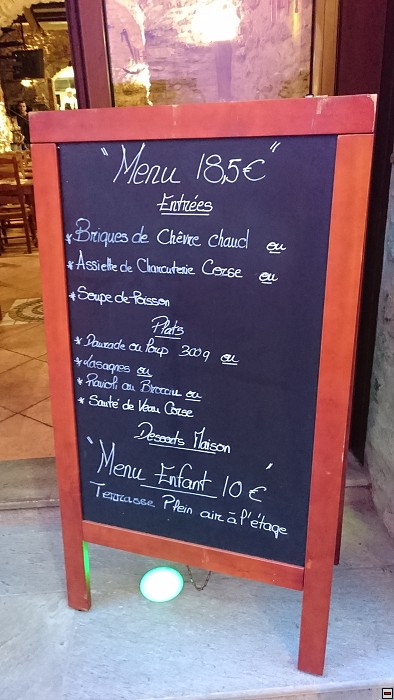 "Menu 18,5€"
Entrées
* Briques de Chêvre chaud ou
* Assiette de Charcuterie Corse ou
* Soupe de Poisson
Plats
* Daurade ou Loup 300g ou
* Lasagnes ou
* Ravioli au Brocciu ou
* Sauté de Veau Corse
Desserts Maison
"Menu Enfant 10 €"
Terrasse Plein air à l'étage